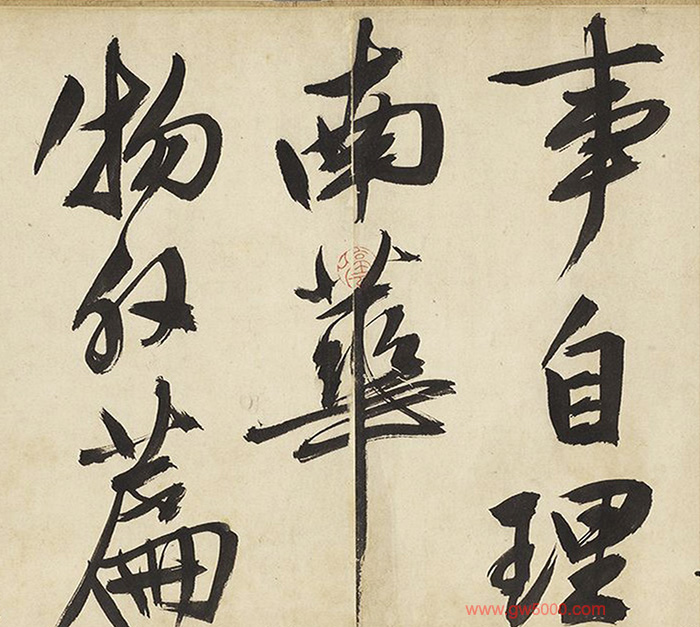 事自理
南華
物外篇
www.gw5000.com